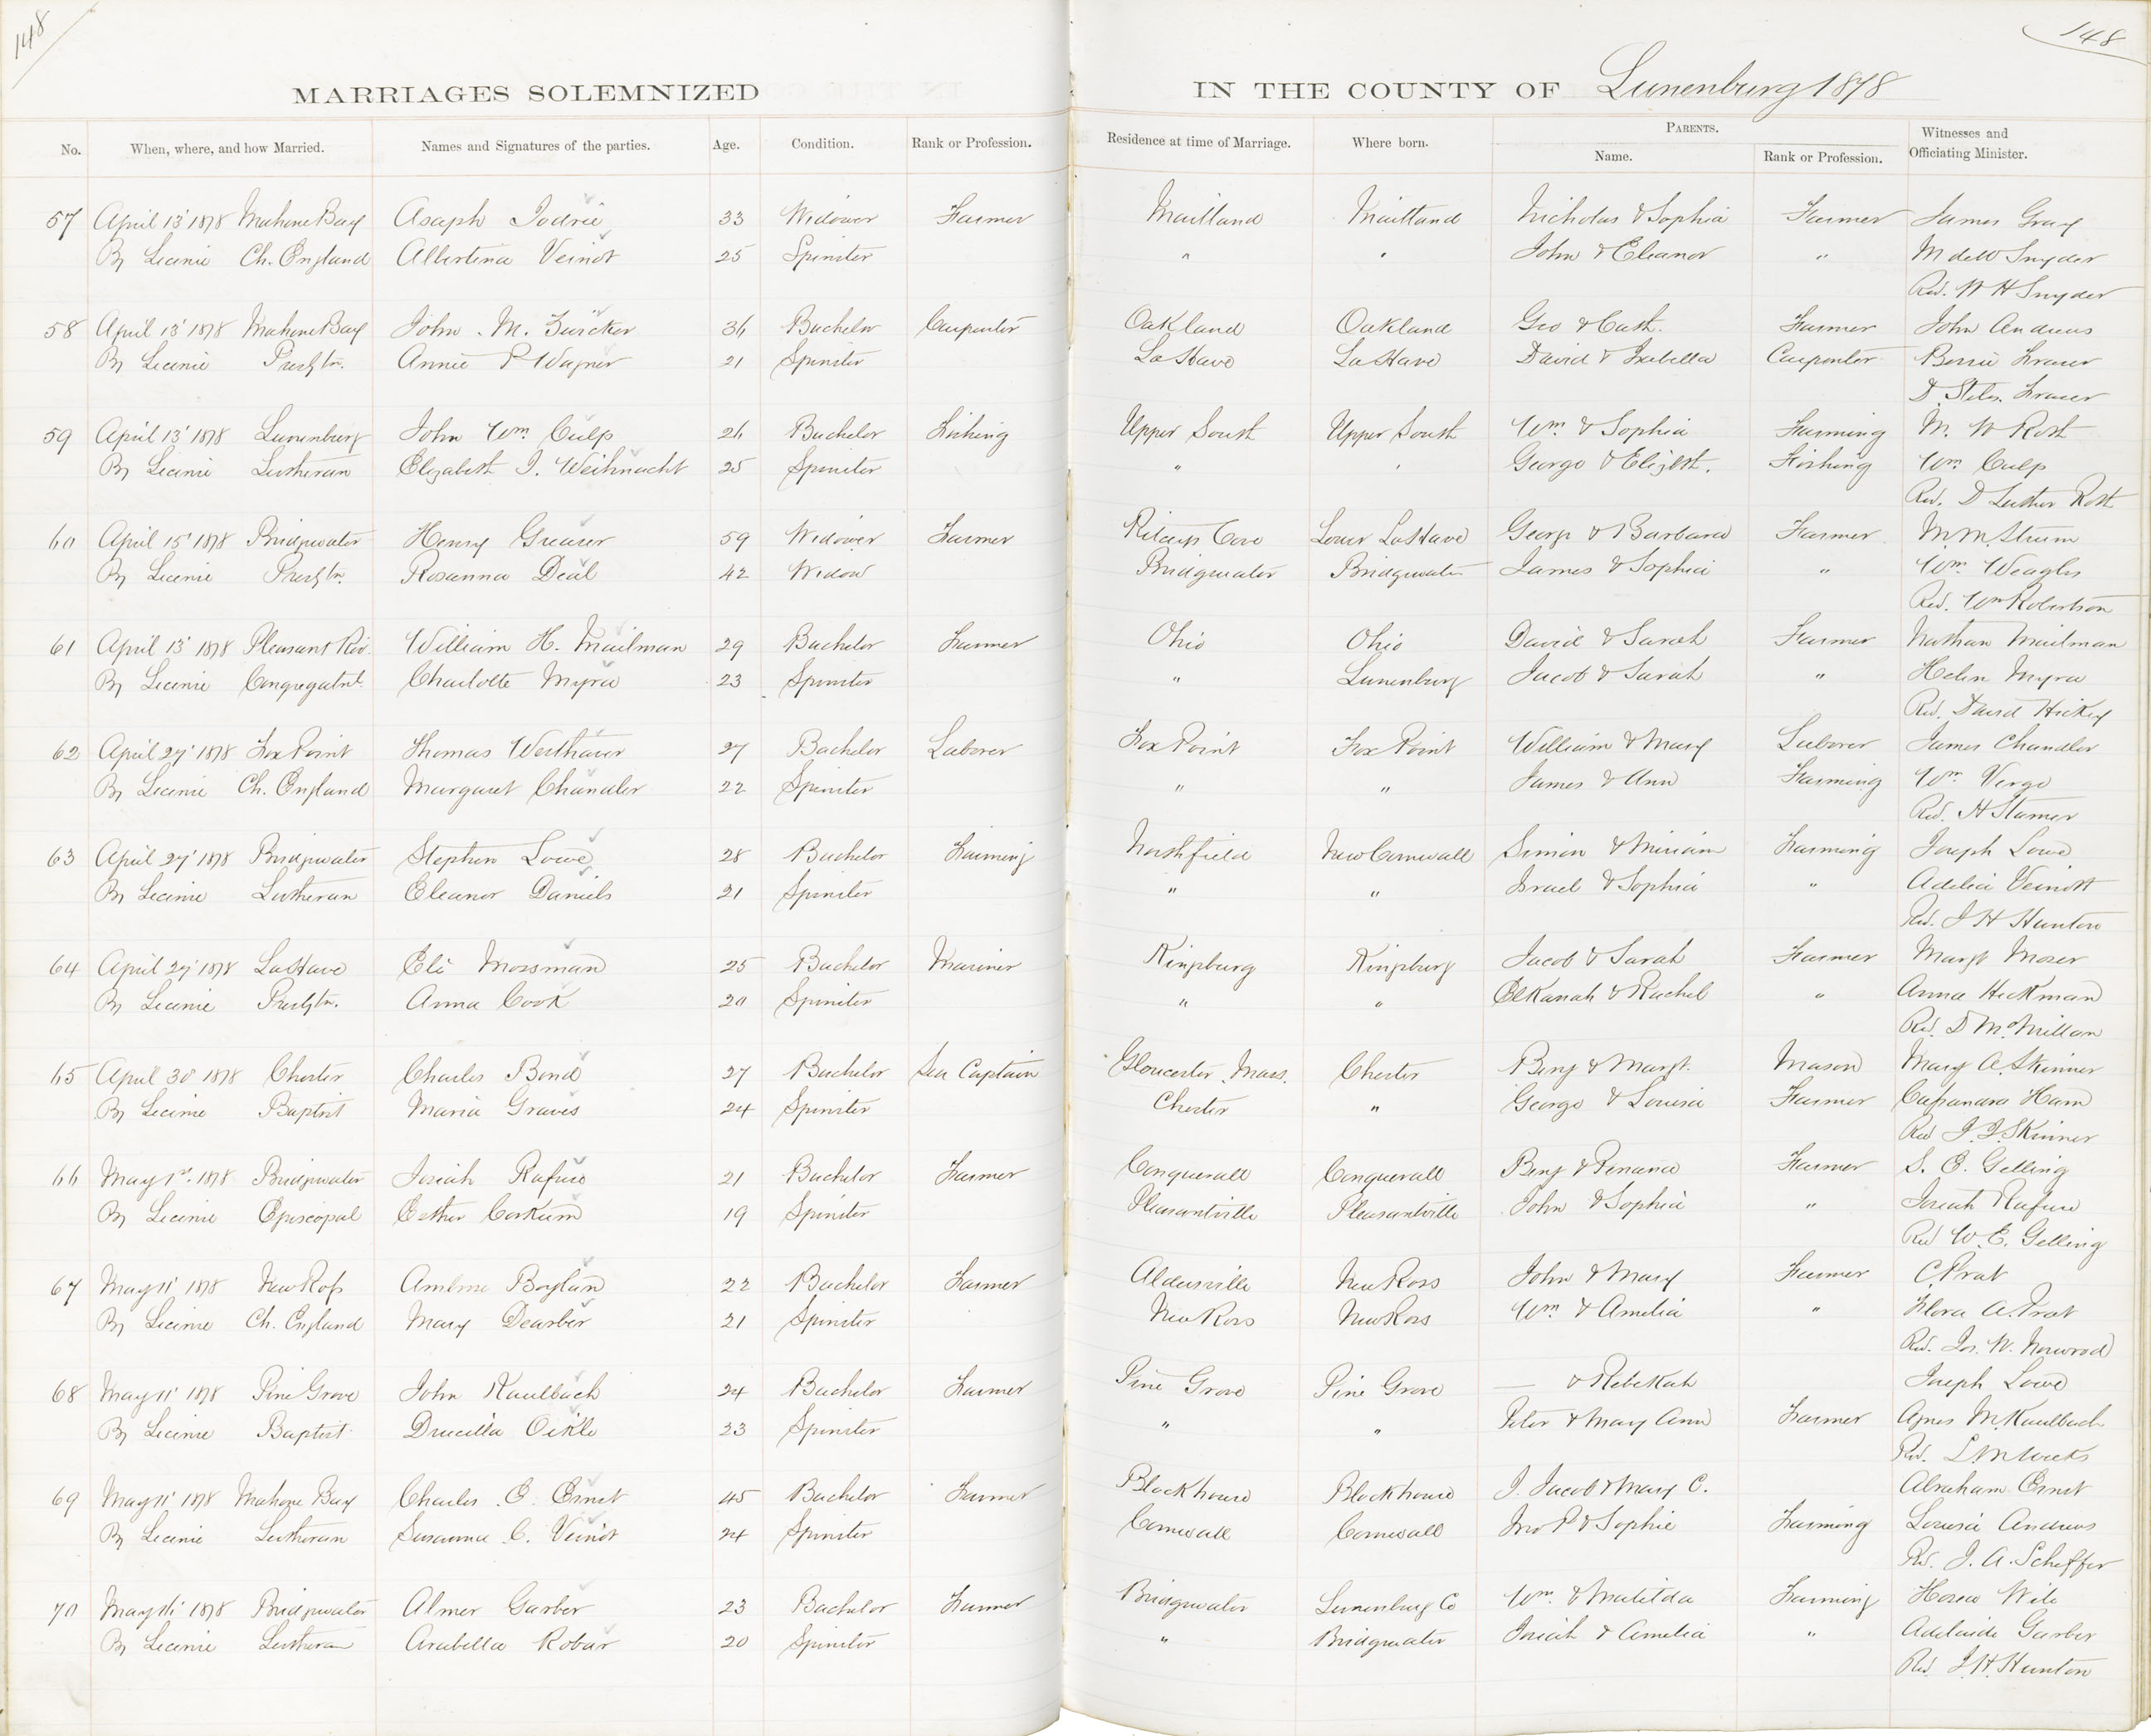 148
148
MARRIAGES SOLEMNIZED IN THE COUNTY OF Lunenburg 1878
No. When, where, and how Married. Names and Signatures of the parties. Age. Condition. Rank or Profession. Residence at time of Marriage. Where born. PARENTS. Name. Rank or Profession. Witnesses and Officiating Minister.
57 April 13' 1878 Mahone Bay Asaph Jodrie 33 Widower Farmer Maitland Maitland Nicholas & Sophia Farmer James Gray
By Licence Ch. England Albertina Veinot 25 Spinster " " John & Eleanor " M deW Snyder
Rev. W H Snyder
58 April 13' 1878 Mahone Bay John . M. Zwicker 36 Bachelor Carpenter Oakland Oakland Geo & Cath. Farmer John Andrews
By Licence Presbtn. Annie P Wagner 21 Spinster LaHave LaHave David & Isabella Carpenter Bessie Fraser
D. Stiles Fraser
59 April 13' 1878 Lunenburg John Wm. Culp 26 Bachelor Fishing Upper South Upper South Wm. & Sophia Farming M. W Roth
By Licence Lutheran Elizabeth J. Weihnacht 25 Spinster " " George & Elizbth. Fishing Wm. Culp
Rev. D Luther Roth
60 April 15' 1878 Bridgwater Henry Greaser 59 Widower Farmer Ritceys Cove Lower LaHave George & Barbara Farmer M. M. Strum
By Licence Presbtn. Rosanna Deal 42 Widow Bridgwater Bridgwater James & Sophia " Wm. Weagles
Rev. Wm Robertson
61 April 13' 1878 Pleasant Riv. William H. Mailman 29 Bachelor Farmer Ohio Ohio David & Sarah Farmer Nathan Mailman
By Licence Congregatnl. Charlotte Myra 23 Spinster " Lunenburg Jacob & Sarah " Helen Myra
Rev. David Hickey
62 April 27' 1878 Fox Point Thomas Westhaver 27 Bachelor Laborer Fox Point Fox Point William & Mary Laborer James Chandler
By Licence Ch. England Margaret Chandler 22 Spinster " " James & Ann Farming Wm. Vergo
Rev. H Stamer
63 April 27' 1878 Bridgwater Stephen Lowe 28 Bachelor Farming Northfield New Cornwall Simon & Miriam Farming Joseph Lowe
By Licence Lutheran Eleanor Daniels 21 Spinster " " Israel & Sophia " Adelia Veinott
Rev. J H Hunton
64 April 27' 1878 LaHave Eli Mossman 25 Bachelor Mariner Kingsburg Kingsburg Jacob & Sarah Farmer Margt Moser
By Licence Presbtn. Anna Cook 20 Spinster " " Elkanah & Rachel " Anna Hickman
Rev. D McMillan
65 April 30' 1878 Chester Charles Bond 27 Bachelor Sea Captain Gloucester Mass. Chester Benj & Margt. Mason Mary A. Skinner
By Licence Baptist Maria Graves 24 Spinster Chester " George & Louisa Farmer Cassandra Ham
Rev I. J. Skinner
66 May 1st. 1878 Bridgwater Josiah Rafuse 21 Bachelor Farmer Conquerall Conquerall Benj & Penana Farmer S. E. Gelling
By Licence Episcopal Esther Corkum 19 Spinster Pleasantville Pleasantville John & Sophia " Josiah Rafuse
Rev W. E. Gelling
67 May 11' 1878 New Ross Ambrose Boylan 22 Bachelor Farmer Aldersville New Ross John & Mary Farmer C Prat
By Licence Ch. England Mary Dearber 21 Spinster New Ross New Ross Wm. & Amelia " Flora A. Prat
Rev. Jos. W. Norwood
68 May 11' 1878 Pine Grove John Kaulback 24 Bachelor Farmer Pine Grove Pine Grove — & Rebekah Joseph Lowe
By Licence Baptist Drucilla Oikle 23 Spinster " " Peter & Mary Ann Farmer Agnes M. Kaulback
Rev. L M Weeks
69 May 11' 1878 Mahone Bay Charles . E. Ernst 45 Bachelor Farmer Blockhouse Blockhouse J. Jacob & Mary C. Abraham Ernst
By Licence Lutheran Susanna C. Veinot 24 Spinster Cornwall Cornwall Jno P & Sophie Farming Louisa Andrews
Rev. J. A. Scheffer
70 May 11' 1878 Bridgwater Almer Garber 23 Bachelor Farmer Bridgwater Lunenburg Co Wm. & Matilda Farming Hosea Wile
By Licence Lutheran Arabella Robar 20 Spinster " Bridgwater Josiah & Amelia " Adelaide Garber
Rev. J. H. Hunton